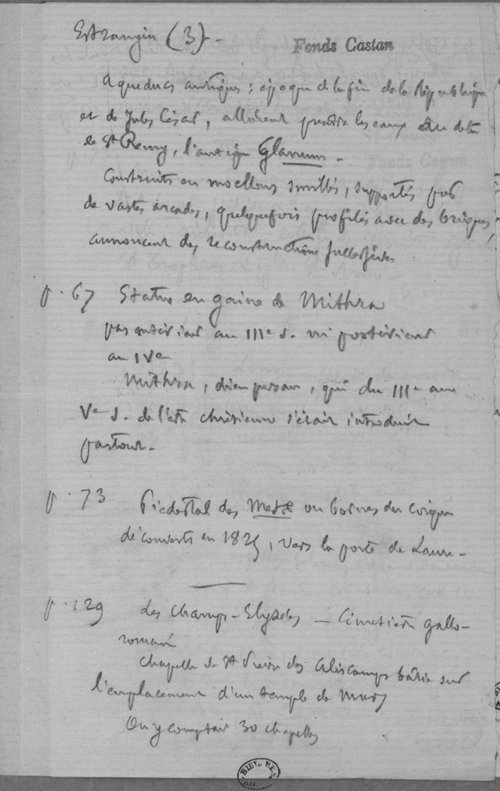 Estrangin (3).
Fonds Castan
Aqueducs antiques : époque de la fin de la République
et de Jules César, allaient prendre les eaux du côté
de St Remy, l'antique Glanum.
Construits en moellons smillés, supportés par
de vastes arcades, quelquefois profilés avec des briques,
annoncent des reconstructions successives
p. 67 Statue en gaine de Mithra
pas antérieur au IIIe s. ni postérieur
au IVe
Mithra, dieu persan, qui du IIIe au
Ve s. de l'ère chrétienne s'était introduit
partout.
p. 73 Piedestal des Metæ ou bornes du cirque
découverts en 1825, vers la porte de Laure.
p. 129 Les Champs-Elysées — Cimetière gallo-
romain
Chapelle de St Pierre des Aliscamps bâtie sur
l'emplacement d'un temple de Mars
On y comptait 30 chapelles